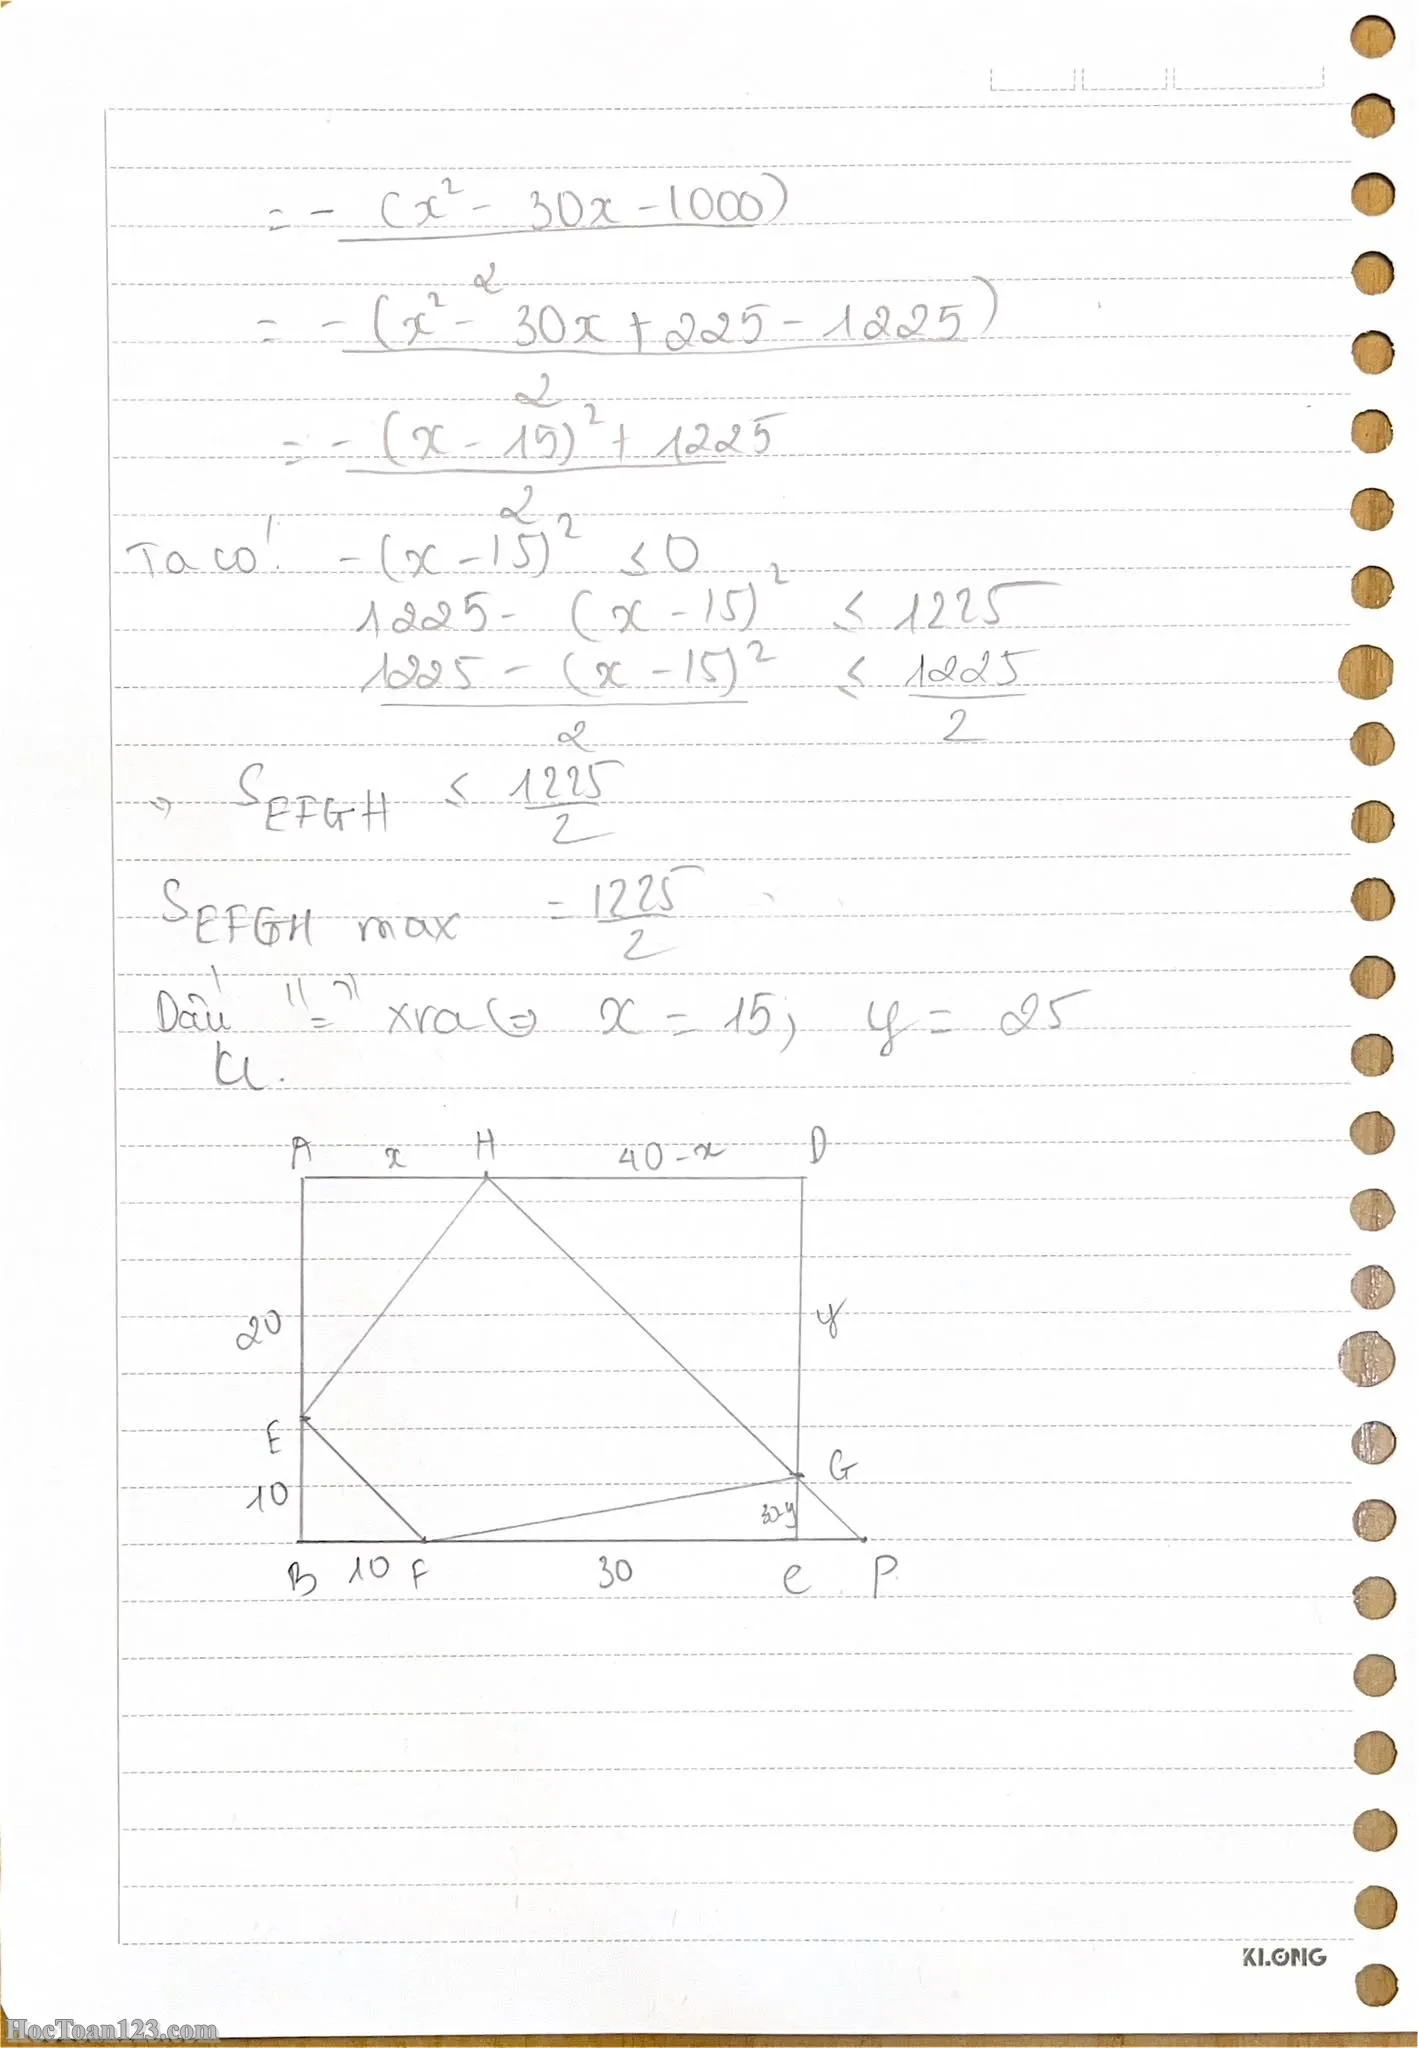 = - (x² - 30x - 1000)
2
= - (x² - 30x + 225 - 1225)
2
= - (x - 15)² + 1225
2
Ta có: -(x - 15)² ≤ 0
1225 - (x - 15)² ≤ 1225
1225 - (x - 15)² ≤ 1225
2 2
⇒ S_EFGH ≤ 1225
2
S_EFGH max = 1225
2
Dấu "=" xra ⇔ x = 15; y = 25
KL.
A x H 40-x D
20 y
E G
10 30-y
B 10 F 30 C P
KLONG
HocToan123.com